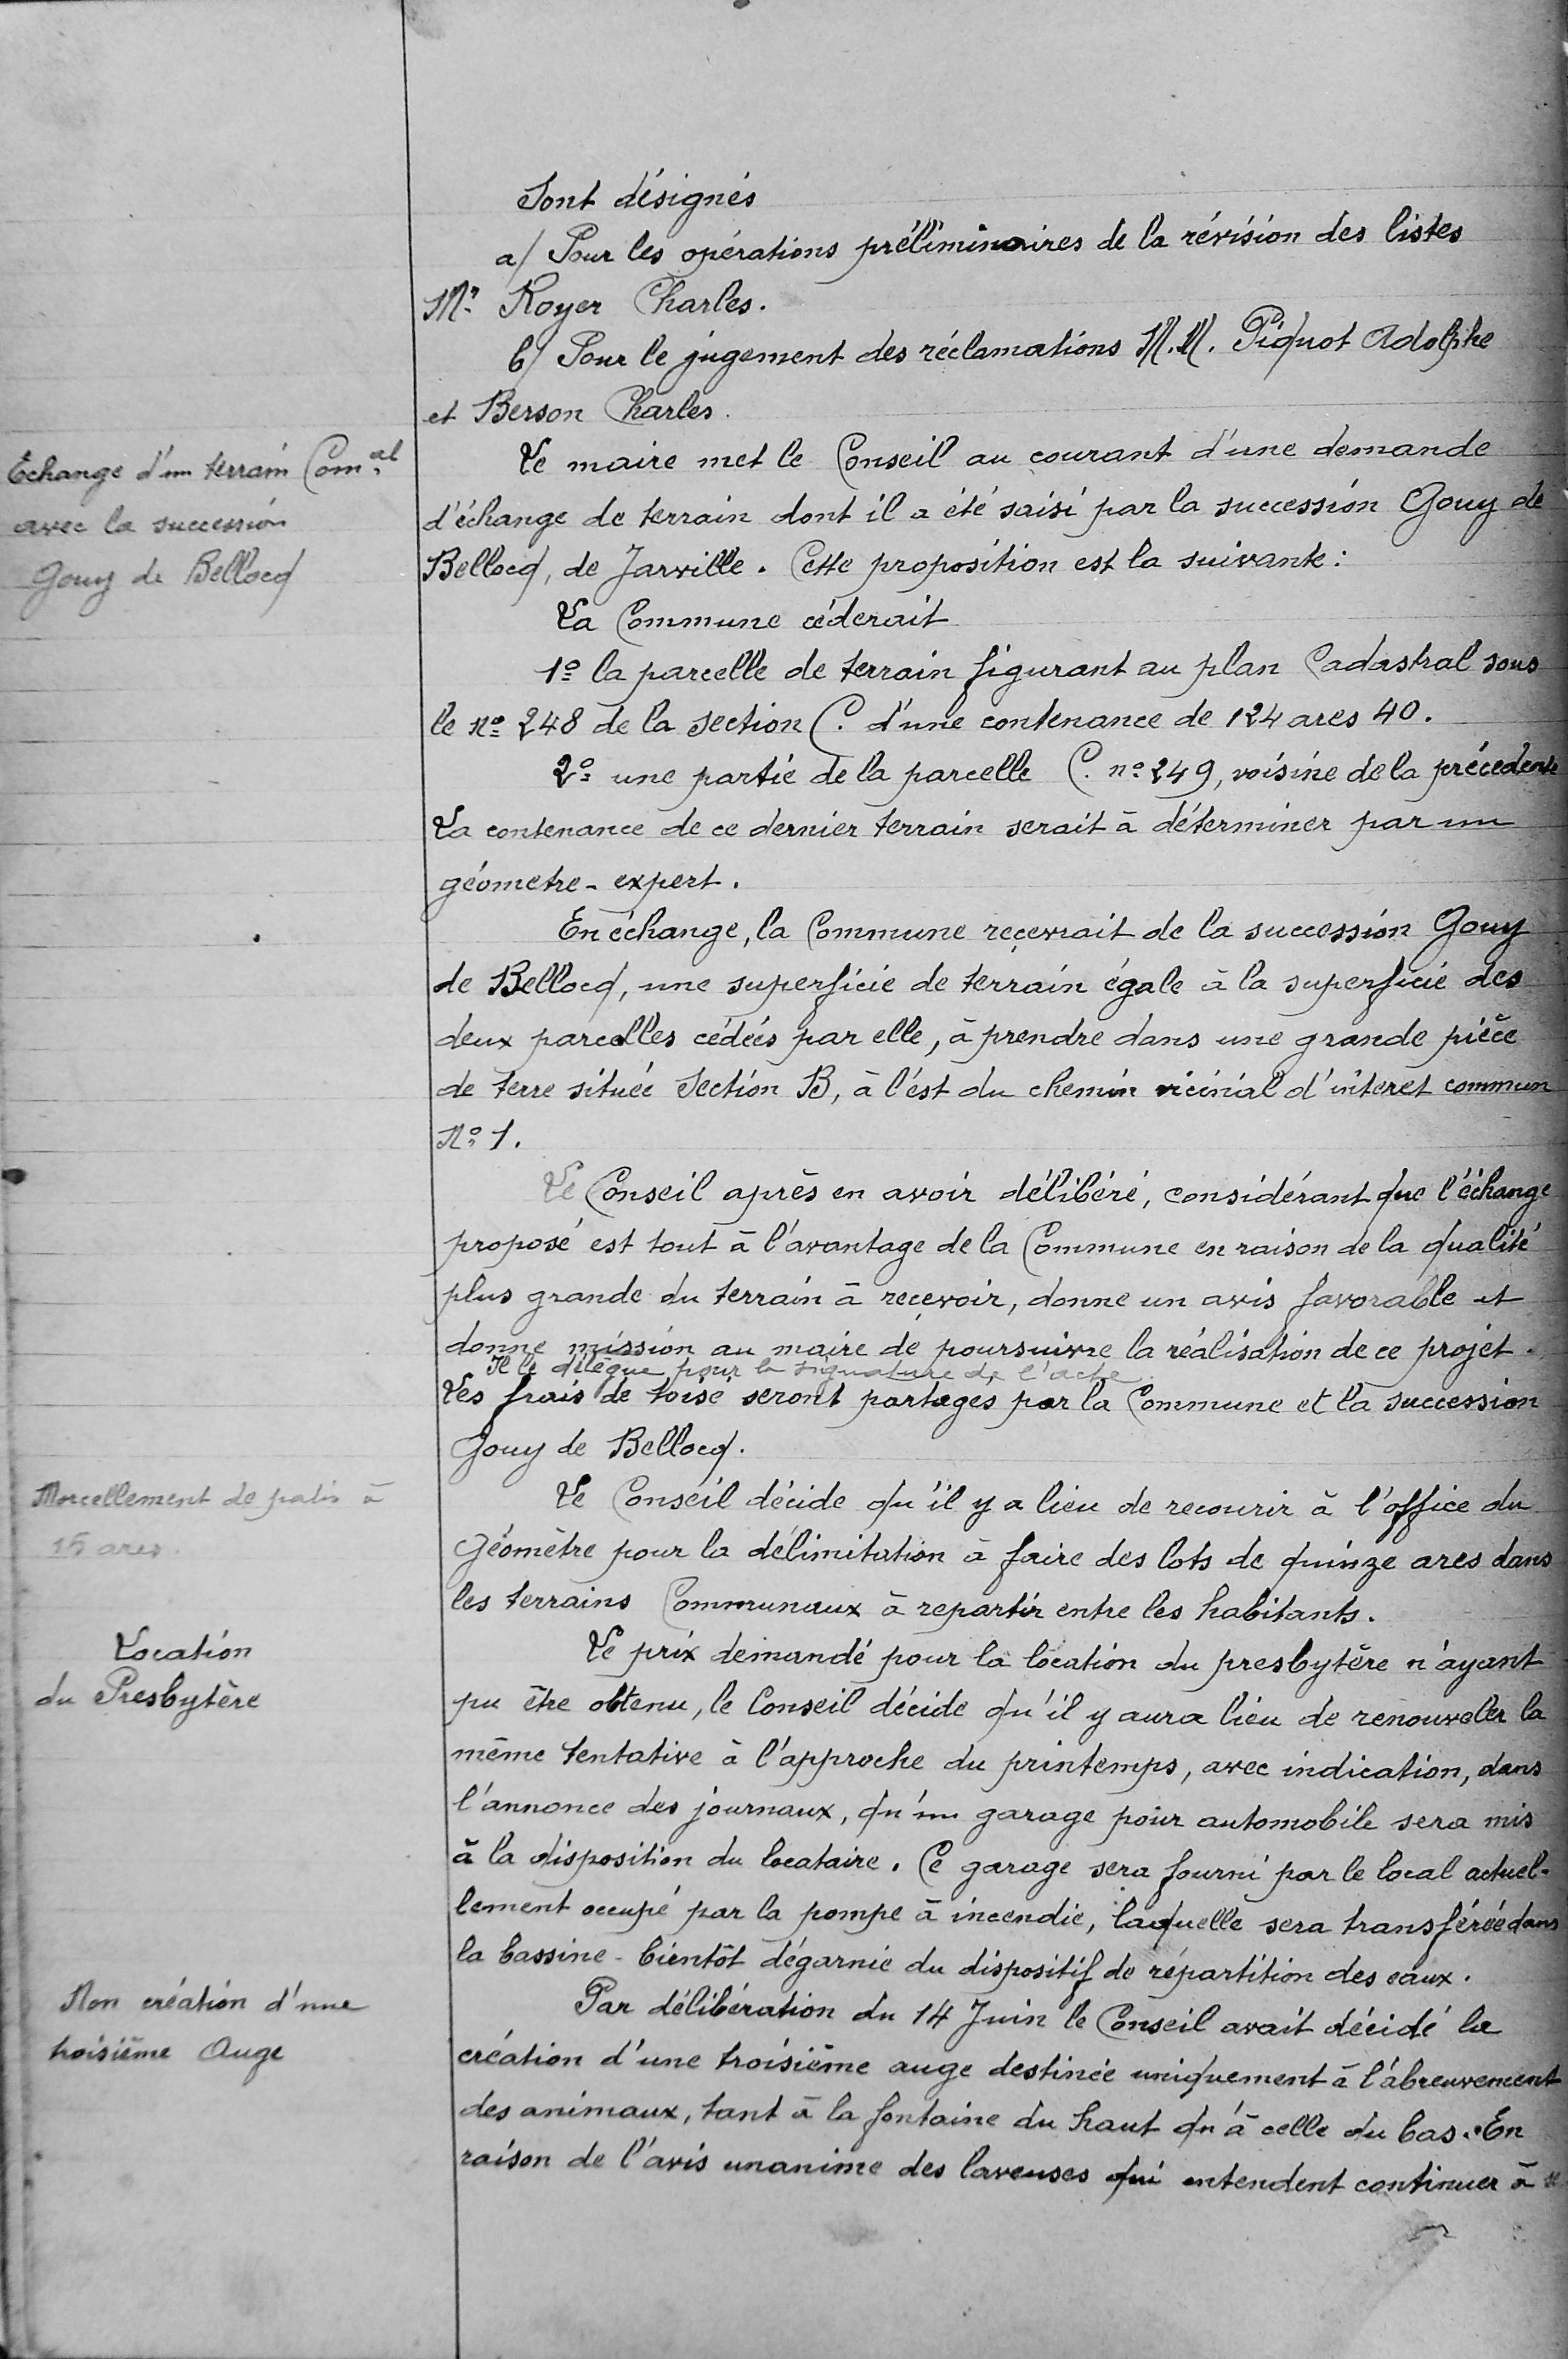 Sont désignés
a/ Pour les opérations préliminaires de la révision des listes
Mr Royer Charles.
b/ Pour le jugement des réclamations M.M. Piquot Adolphe
et Berson Charles.
Echange d'un terrain Com.al
avec la succession
Gouy de Bellocq
Le maire met le Conseil au courant d'une demande
d'échange de terrain dont il a été saisi par la succession Gouy de
Bellocq, de Jarville. Cette proposition est la suivante :
La Commune céderait
1º la parcelle de terrain figurant au plan Cadastral sous
le nº 248 de la section C. d'une contenance de 124 ares 40.
2º une partie de la parcelle C. nº 249, voisine de la précedente
La contenance de ce dernier terrain serait à déterminer par un
géometre-expert.
En échange, la Commune reçevrait de la succession Gouy
de Bellocq, une superficie de terrain égale à la superficie des
deux parcelles cédées par elle, à prendre dans une grande pièce
de terre située Section B, à l'est du chemin vicinial d'intérêt commun
Nº 1.
Le Conseil après en avoir délibéré, considérant que l'échange
proposé est tout à l'avantage de la Commune en raison de la qualité
plus grande du terrain à reçevoir, donne un avis favorable et
donne mission au maire de poursuivre la réalisation de ce projet.
Il le délègue pour la signature de l'acte.
Les frais de toise seront partages par la Commune et la succession
Gouy de Bellocq.
Morcellement de patis à
15 ares.
Le Conseil décide qu'il y a lieu de recourir à l'office du
Géomètre pour la délimitation à faire des lots de quinze ares dans
les terrains Communaux à repartir entre les habitants.
Location
du Presbytère
Le prix demandé pour la location du presbytère n'ayant
pu être obtenu, le Conseil décide qu'il y aura lieu de renouveler la
même tentative à l'approche du printemps, avec indication, dans
l'annonce des journaux, qu'un garage pour automobile sera mis
à la disposition du locataire. Ce garage sera fourni par le local actuel-
lement occupé par la pompe à incendie, laquelle sera transférée dans
la bassine - bientôt dégarnie du dispositif de répartition des eaux.
Non création d'une
troisième Auge
Par délibération du 14 Juin le Conseil avait décidé la
création d'une troisième auge destinée uniquement à l'abreuvement
des animaux, tant à la fontaine du haut qu'à celle du bas. En
raison de l'avis unanime des laveuses qui entendent continuer à